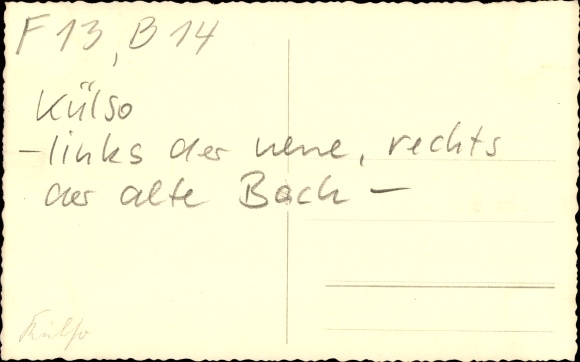 F 13, B 14
Külso
- links der neue, rechts
der alte Bach -
Külso